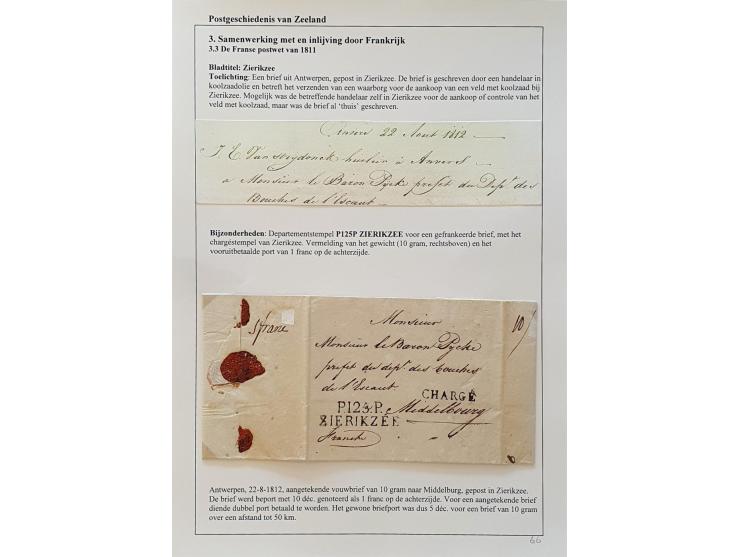 Postgeschiedenis van Zeeland
3. Samenwerking met en inlijving door Frankrijk
3.3 De Franse postwet van 1811
Bladtitel: Zierikzee
Toelichting: Een brief uit Antwerpen, gepost in Zierikzee. De brief is geschreven door een handelaar in
koolzaadolie en betreft het verzenden van een waarborg voor de aankoop van een veld met koolzaad bij
Zierikzee. Mogelijk was de betreffende handelaar zelf in Zierikzee voor de aankoop of controle van het
veld met koolzaad, maar was de brief al ‘thuis’ geschreven.
22 Aout 1812
J. E. huilier à Anvers
a Monsieur le Baron Pyck prefet du Dept. des
Bouches de l'Escaut
Bijzonderheden: Departementstempel P125P ZIERIKZEE voor een gefrankeerde brief, met het
chargéstempel van Zierikzee. Vermelding van het gewicht (10 gram, rechtsboven) en het
vooruitbetaalde port van 1 franc op de achterzijde.
1 franc
10
Monsieur
Monsieur le Baron Pycke
prefet du dept. des bouches
de l'Escaut
CHARGÉ
P125P. Middelbourg
ZIERIKZÉE
Franche
Antwerpen, 22-8-1812, aangetekende vouwbrief van 10 gram naar Middelburg, gepost in Zierikzee.
De brief werd beport met 10 déc. genoteerd als 1 franc op de achterzijde. Voor een aangetekende brief
diende dubbel port betaald te worden. Het gewone briefport was dus 5 déc. voor een brief van 10 gram
over een afstand tot 50 km.
66